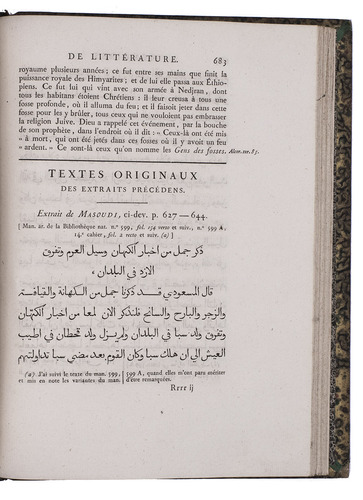 DE LITTÉRATURE. 683
royaume plusieurs années ; ce fut entre ses mains que finit la
puissance royale des Himyarites ; et de lui elle passa aux Éthio-
piens. Ce fut lui qui vint avec son armée à Nedjran, dont
tous les habitans étoient Chrétiens : il leur creusa à tous une
fosse profonde, où il alluma du feu ; et il faisoit jeter dans cette
fosse pour les y brûler, tous ceux qui ne vouloient pas embrasser
la religion Juive. Dieu a rappelé cet événement, par la bouche
de son prophète, dans l'endroit où il dit : » Ceux-là ont été mis
» à mort, qui ont été jetés dans ces fosses où il y avoit un feu
» ardent. » Ce sont-là ceux qu'on nomme les Gens des fosses. Alcor. sur. 85.
TEXTES ORIGINAUX
DES EXTRAITS PRÉCÉDENS.
Extrait de MASOUDI, ci-dev. p. 627 — 644.
[ Man. ar. de la Bibliothèque nat. n.° 599, fol. 134 recto et suiv., n.° 599 A,
14.e cahier, fol. 2 recto et suiv. (a) ]
ذكر جمل من اخبار الكهان وسيل العرم وتفرق
الازد في البلدان ،
قال المسعودي قد ذكرنا جمل من الكهانة والقيافة
والزجر والبارح والسانح فلنذكر الان لمعا من اخبار الكهان
وتفرق ولد سبا في البلدان ولم يزل ولد قحطان في اطيب
العيش الي ان هلك سبا وكان القوم بعد مضي سبا تداولتهم
(a) J'ai suivi le texte du man. 599, 599 A, quand elles m'ont paru mériter
et mis en note les variantes du man. d'être remarquées.
Rrrr ij